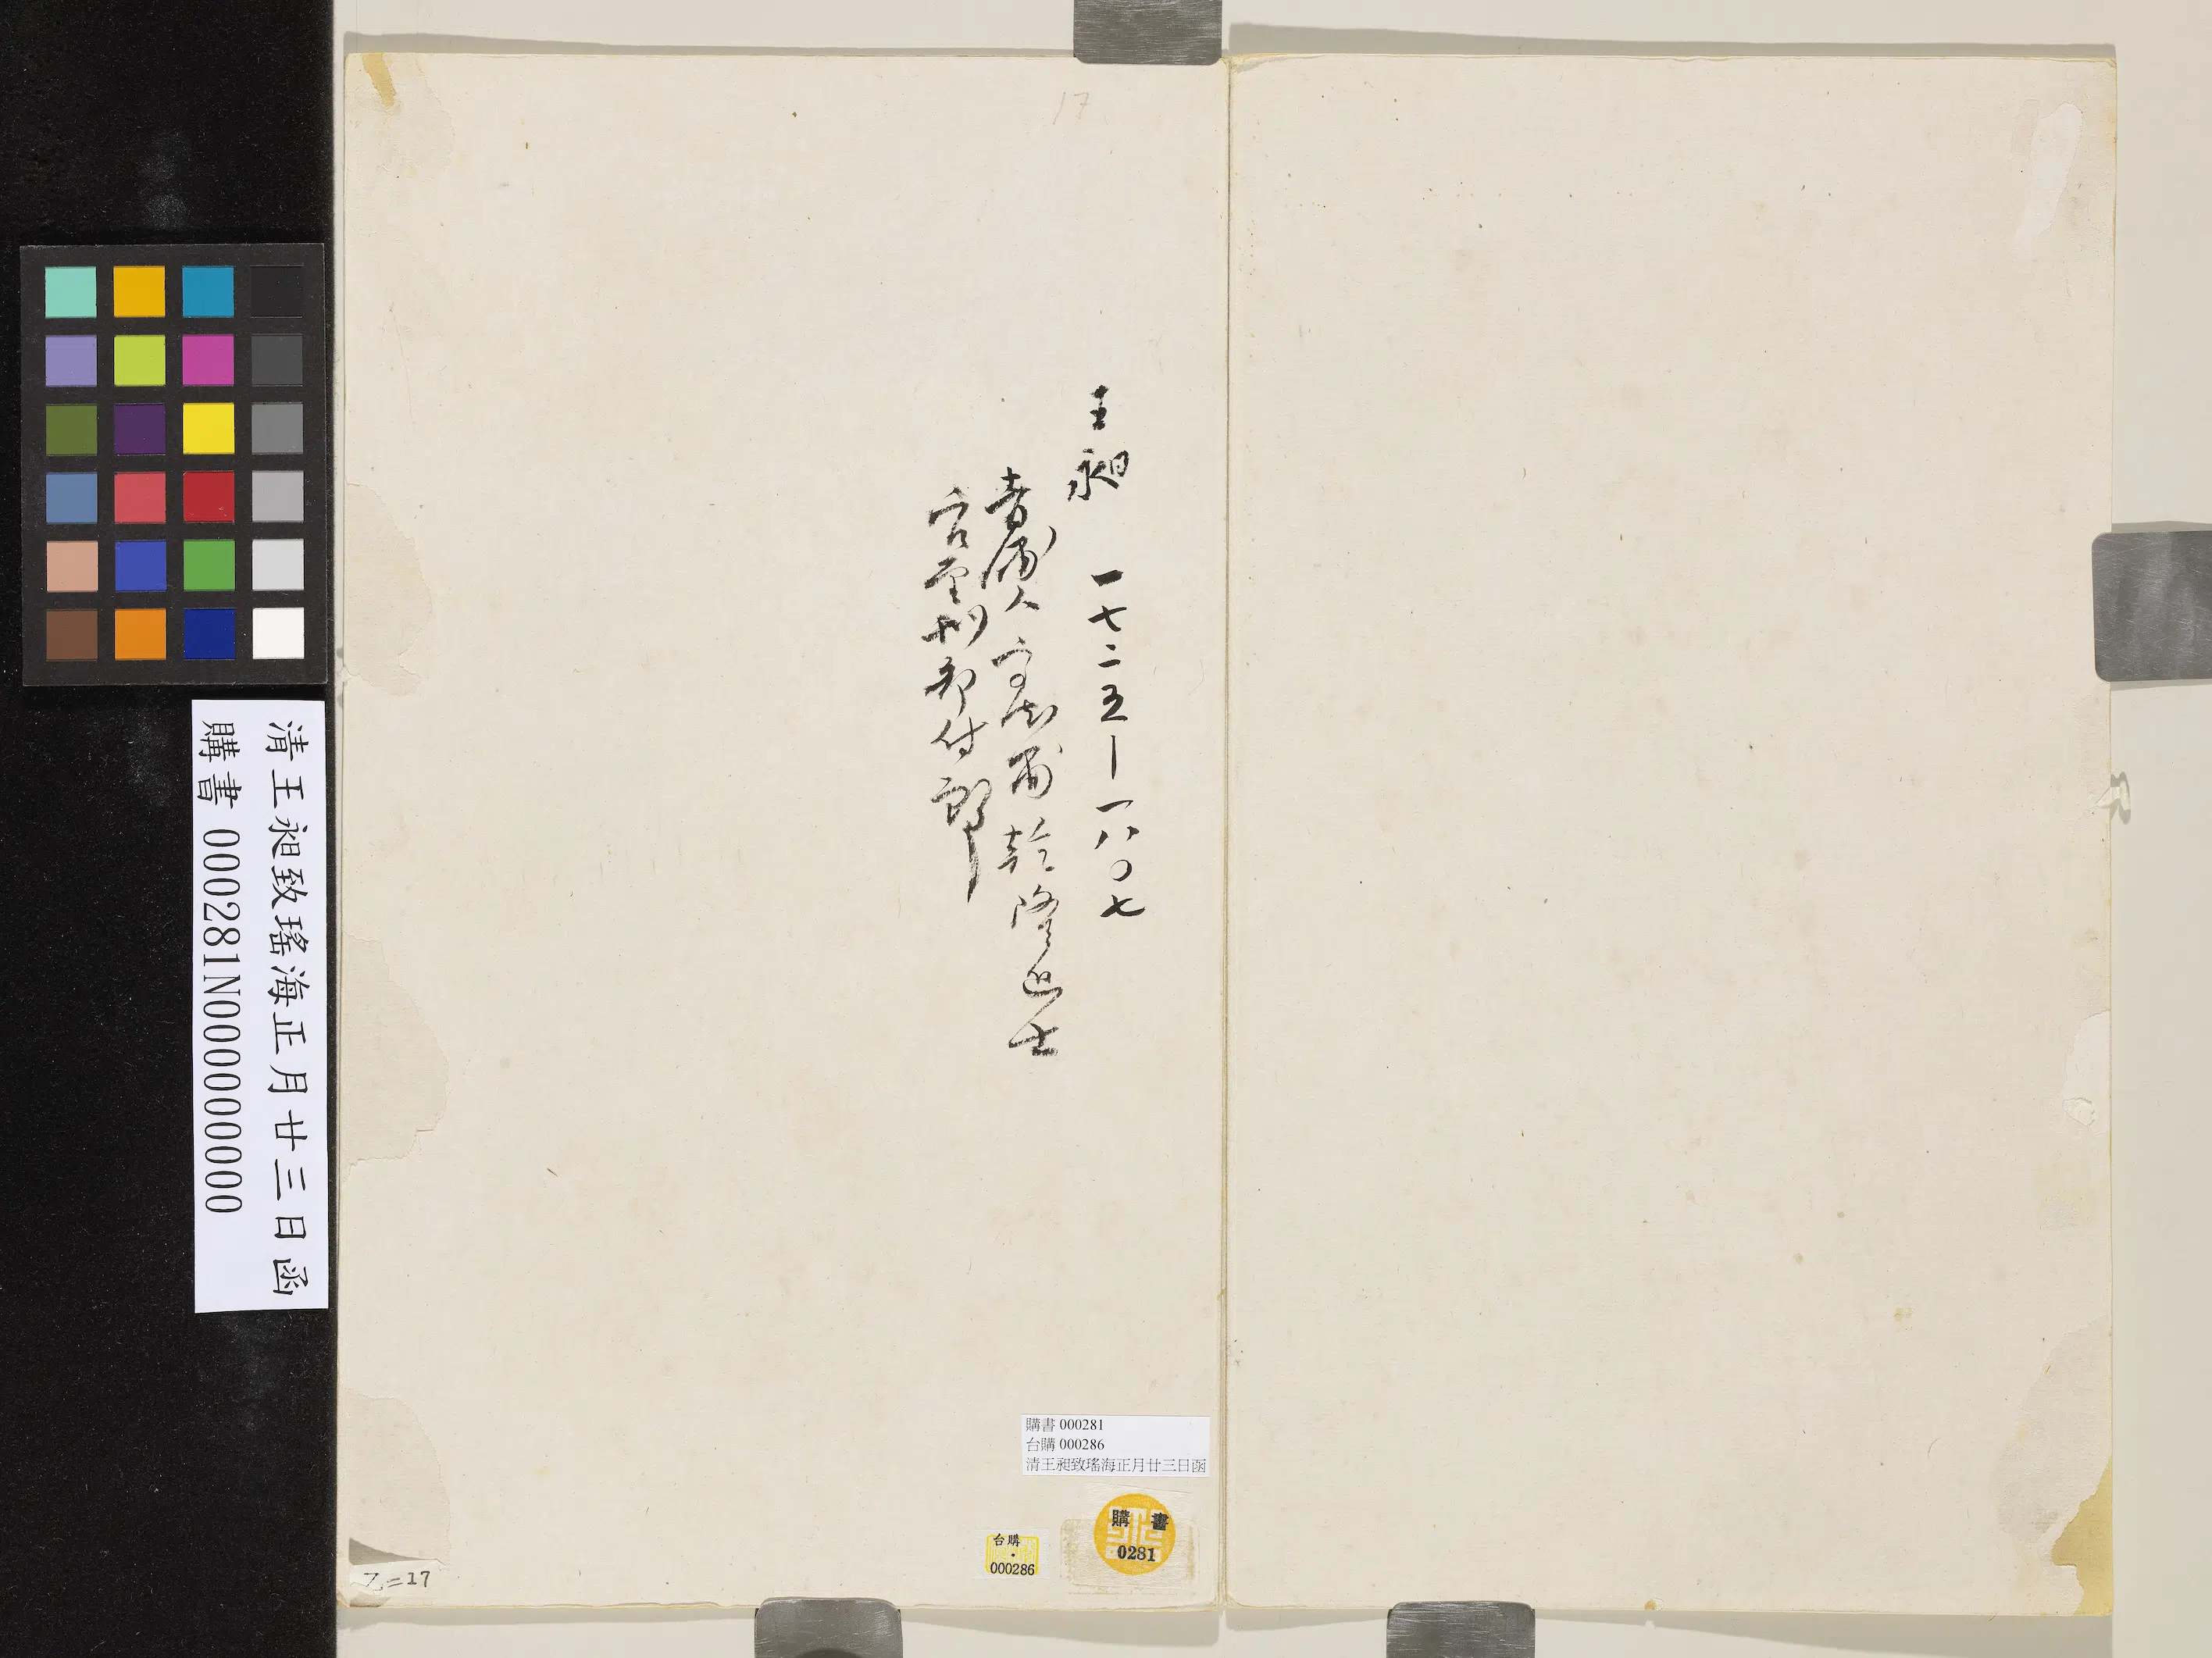 17
王昶　一七二五—一八〇七
青浦人字德甫乾隆進士
官至刑部侍郎
清王昶致瑤海正月廿三日函
購書 000281N000000000
購書 000281
台購 000286
清王昶致瑤海正月廿三日函
購書
0281
台購
000286
乙=17